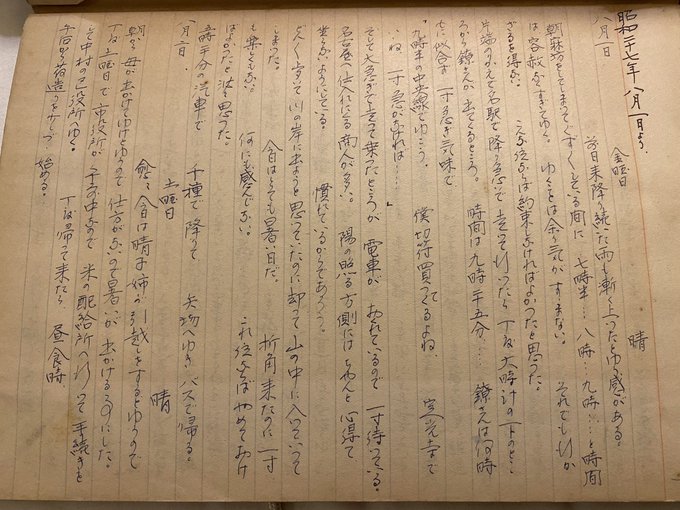 昭和二十七年八月一日より
八月一日　金曜日　晴
前日来降り続いた雨も漸く上ったという感がある。
朝寐坊をしてしまってぐずぐずしている間に 七時半… 八時… 九時…… と時間
は容赦なくすぎてゆく。 ゆくことは余り気がすまない。 それでも行か
ざるを得ない。 こんな位ならば約束しなければよかったと思った。
のりかえて名駅で降り急いで走って行ったら丁度大時計の下のとこ
ろから鎌さんが出てくるところ。 時間は九時二十五分…… 鎌さんは何時
もに似合ず一寸急き気味で
「九時半の中央線でゆこう。 僕切符買ってくるよね、 定光寺まで
いね 一寸急がなければ……」
そして大急ぎで走って乗ったところが 電車が おくれているので一寸待っている。
名古屋へ仕入れにくる商人が多い。 陽の照る方側にはちゃんと心得て
坐らないようにしている。 慣れているからであろう。
どんどん歩いて川の岸に出ようと思っていたのに却って山の中に入っていって
しまった。 今日はとても暑い日だ。 折角来たのに一寸
も楽しくない。 何にも感じない。 これ位ならばやめておけ
ばよかったと迄思った。
時半分の汽車で 千種で降りて 矢場へゆき バスで帰る。
八月二日　土曜日　晴
愈々今日は晴子姉の引越しをするというので
朝から母が出かけゆけというので仕方がないので暑いが出かけることにした。
丁度土曜日で市役所が半日なので 米の配給所へ行って手続きを
し中村の区役所へゆく。 丁度帰って来たら 昼食時。
午后から荷造りをしつつ 始める。